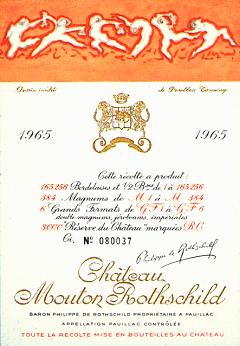 Dessin inédit de Dorothea Tanning
1965 1965
Cette récolte a produit:
165256 Bordelaises et 1/2 Bses de 1 à 165256
384 Magnums de M 1 à M 384
6 Grands Formats de G F 1 à G F 6
double magnums, jéroboams, impériales
3000 Réserve du Château marquées R.C.
Ci, Nº 080037
Philippe de Rothschild
Château
Mouton Rothschild
BARON PHILIPPE DE ROTHSCHILD PROPRIÉTAIRE A PAUILLAC
APPELLATION PAUILLAC CONTRÔLÉE
TOUTE LA RÉCOLTE MISE EN BOUTEILLES AU CHATEAU